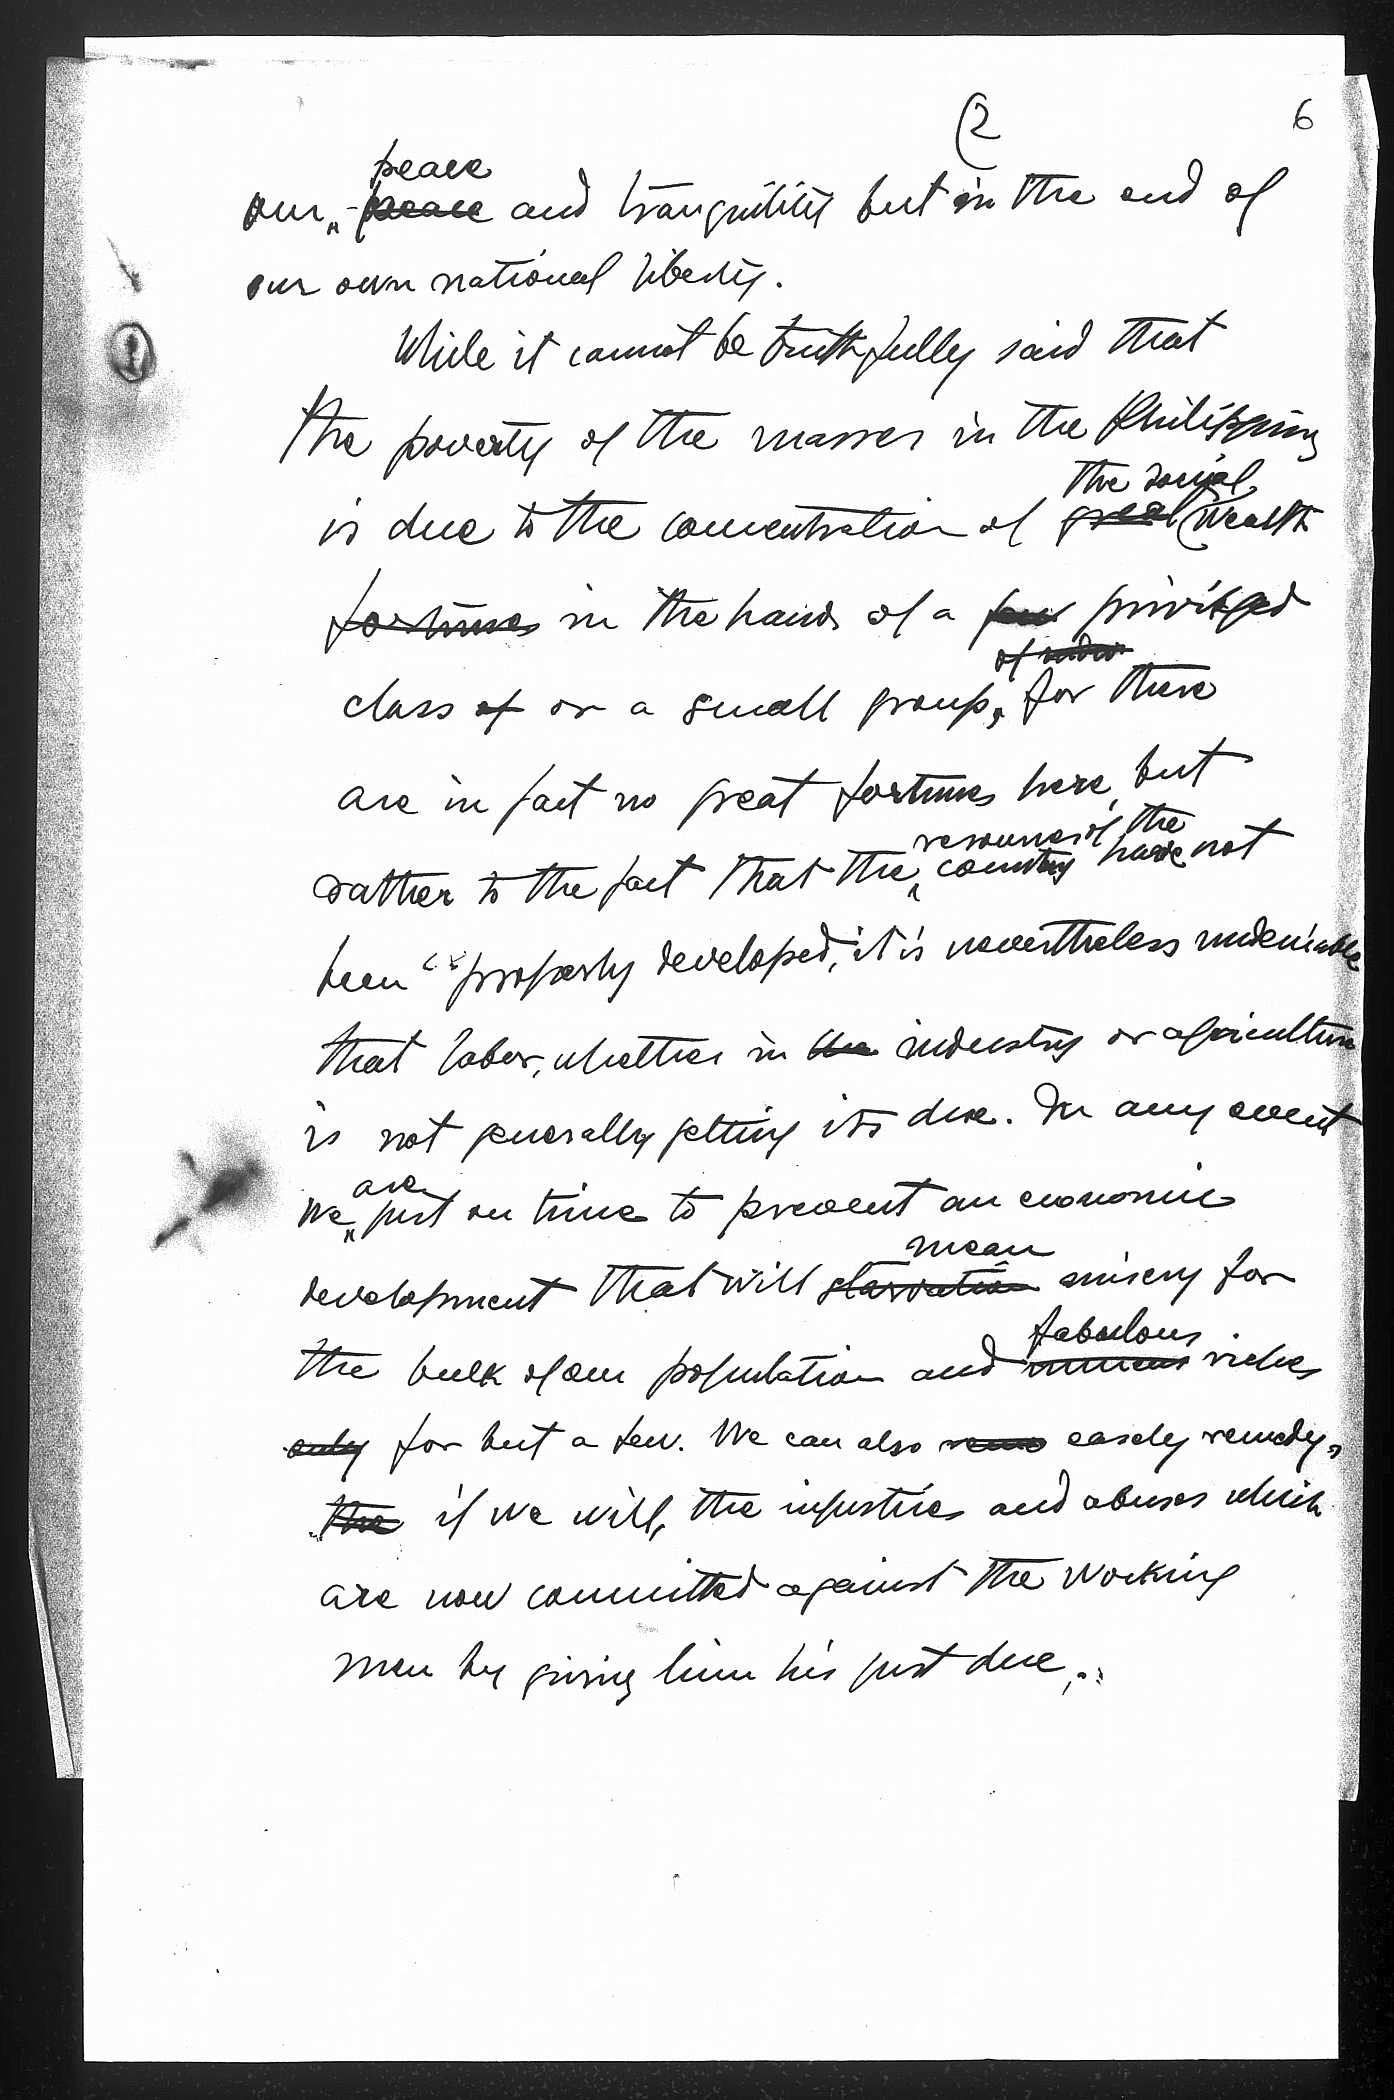 (2
6
peace
our peace and tranquility but in the end of
our own national liberty.
While it cannot be truthfully said that
the poverty of the masses in the Philippines
the social
is due to the concentration of great wealth
fortunes in the hands of a few privileged
of
class of or a small group, for there
are in fact no great fortunes here, but
resources of the
rather to the fact that the country have not
been properly developed, it is nevertheless undeniable
that labor, whether in the industry or agriculture
is not generally getting its due. In any event
are
we just on time to prevent an economic
mean
development that will starvation misery for
fabulous
the bulk of our population and immense riches
only for but a few. We can also easely remedy,
the if we will, the injustices and abuses which
are now committed against the working
man by giving him his just due.